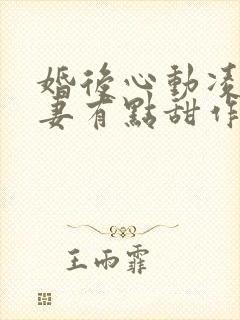 婚後心動凌
妻有點甜作
王雨霏